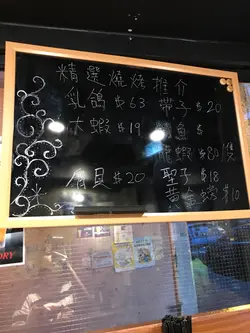 精選燒烤推介
乳鴿 $63 帶子 $20
木蝦 $19 魚 $
龍蝦 $80
貝 $20 聖子 $18
黃金 $10